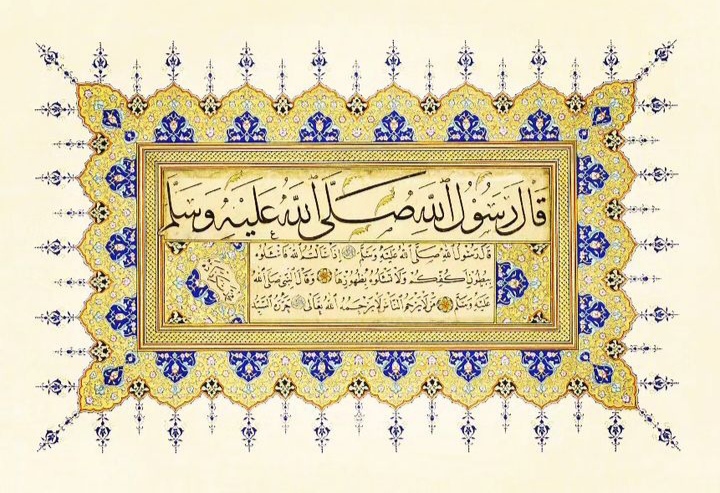 قَالَ رَسُولُ اللهِ صَلَّى اللهُ عَلَيْهِ وَسَلَّمَ
قال رسول الله صلى الله عليه وسلم إذا سألتم الله فاسألوه
ببطون أكفكم ولا تسألوه بظهورها وقال النبي صلى الله
عليه وسلم من لا يرحم الناس لا يرحمه الله تعالى